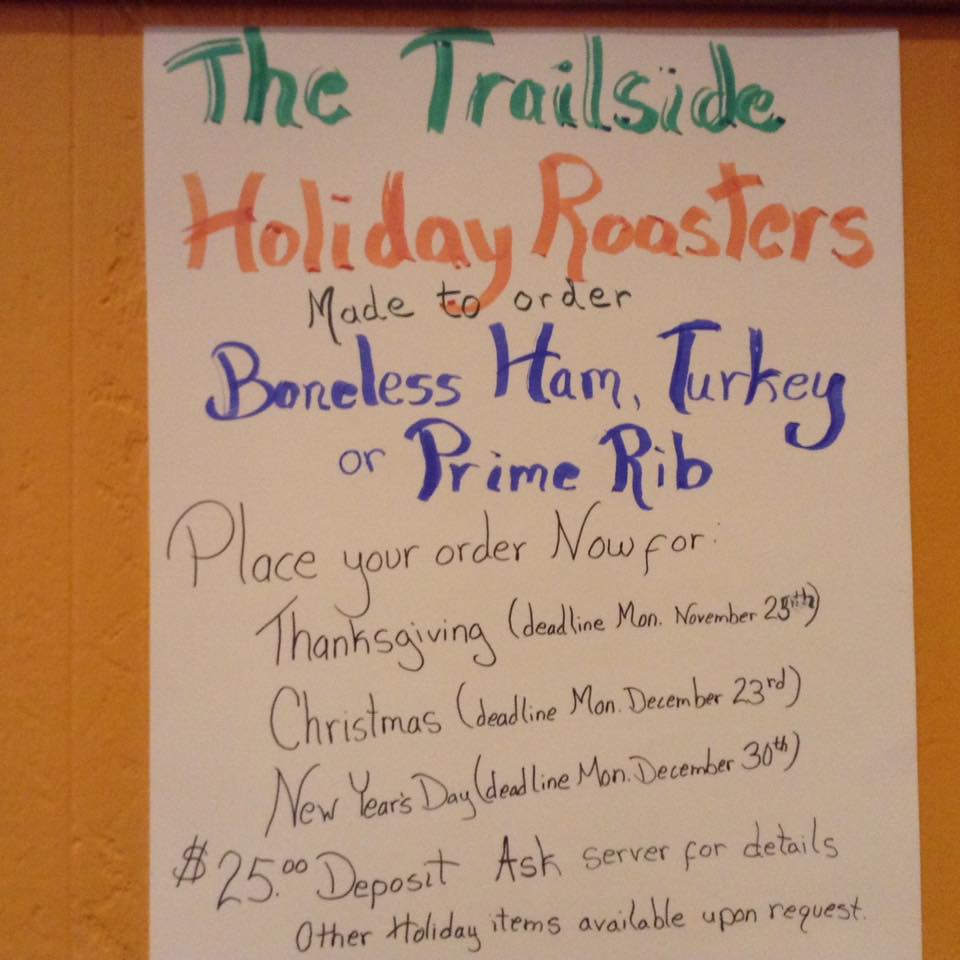 The Trailside
Holiday Roasters
Made to order
Boneless Ham, Turkey
or Prime Rib
Place your order Now for:
Thanksgiving (deadline Mon. November 25th)
Christmas (deadline Mon. December 23rd)
New Year's Day (deadline Mon. December 30th)
$25.00 Deposit Ask server for details
Other Holiday items available upon request.